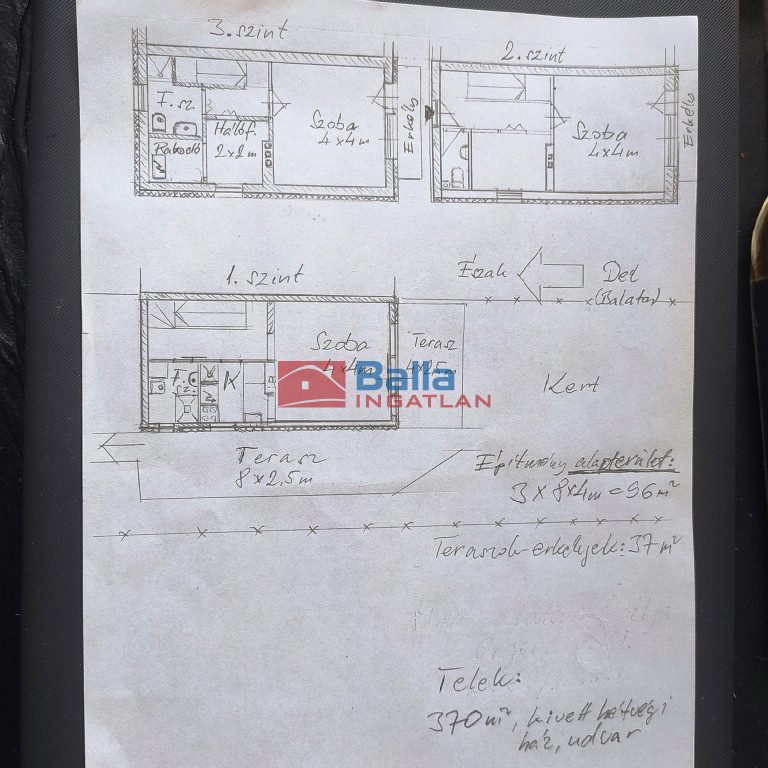 3. szint
F. sz
Hálóf.
2x2m
Rakodó
Szoba
4x4m
Erkély
2. szint
Szoba
4x4m
Erkély
Észak
Dél
(Balaton)
1. szint
F.
sz.
K
Szoba
4x4m
Terasz
4x2,5m
Kert
Balla
INGATLAN
Terasz
8x2,5m
Építmény alapterület:
3 x 8x4m = 96 m²
Teraszok-erkélyek: 37 m²
Telek:
370 m², kivett hétvégi
ház, udvar